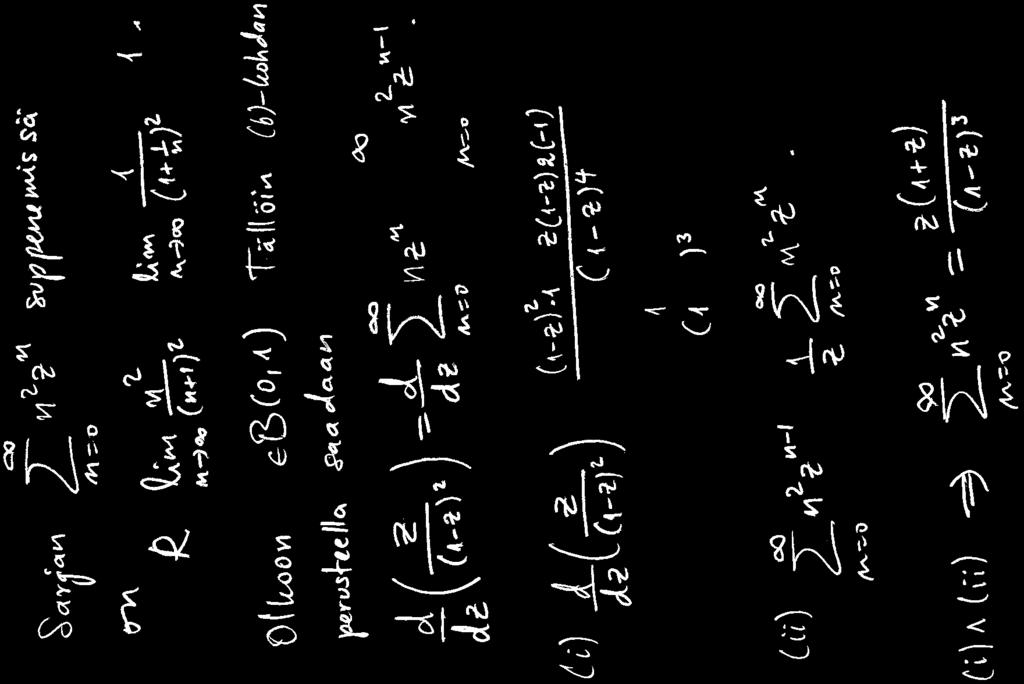 Sarjan ∑_{n=0}^{∞} n² zⁿ suppenemissä
on R lim_{n→∞} n²/(n+1)² lim_{n→∞} 1/(1+1/n)² 1.
Olkoon ∈B(0,1) Tällöin (b)-kohdan
perusteella saadaan
d/dz (z/(1-z)²) = d/dz ∑_{n=0}^{∞} nzⁿ ∞ n=0 n² z^{n-1}.
(i) d/dz (z/(1-z)²) ((1-z)²·1 z(1-z)2(-1))/(1-z)⁴
1 (1 )³
(ii) ∑_{n=0}^{∞} n² z^{n-1} 1/z ∑_{n=0}^{∞} n² zⁿ.
(i) ∧ (ii) ⇒ ∑_{n=0}^{∞} n² zⁿ = z(1+z)/(1-z)³